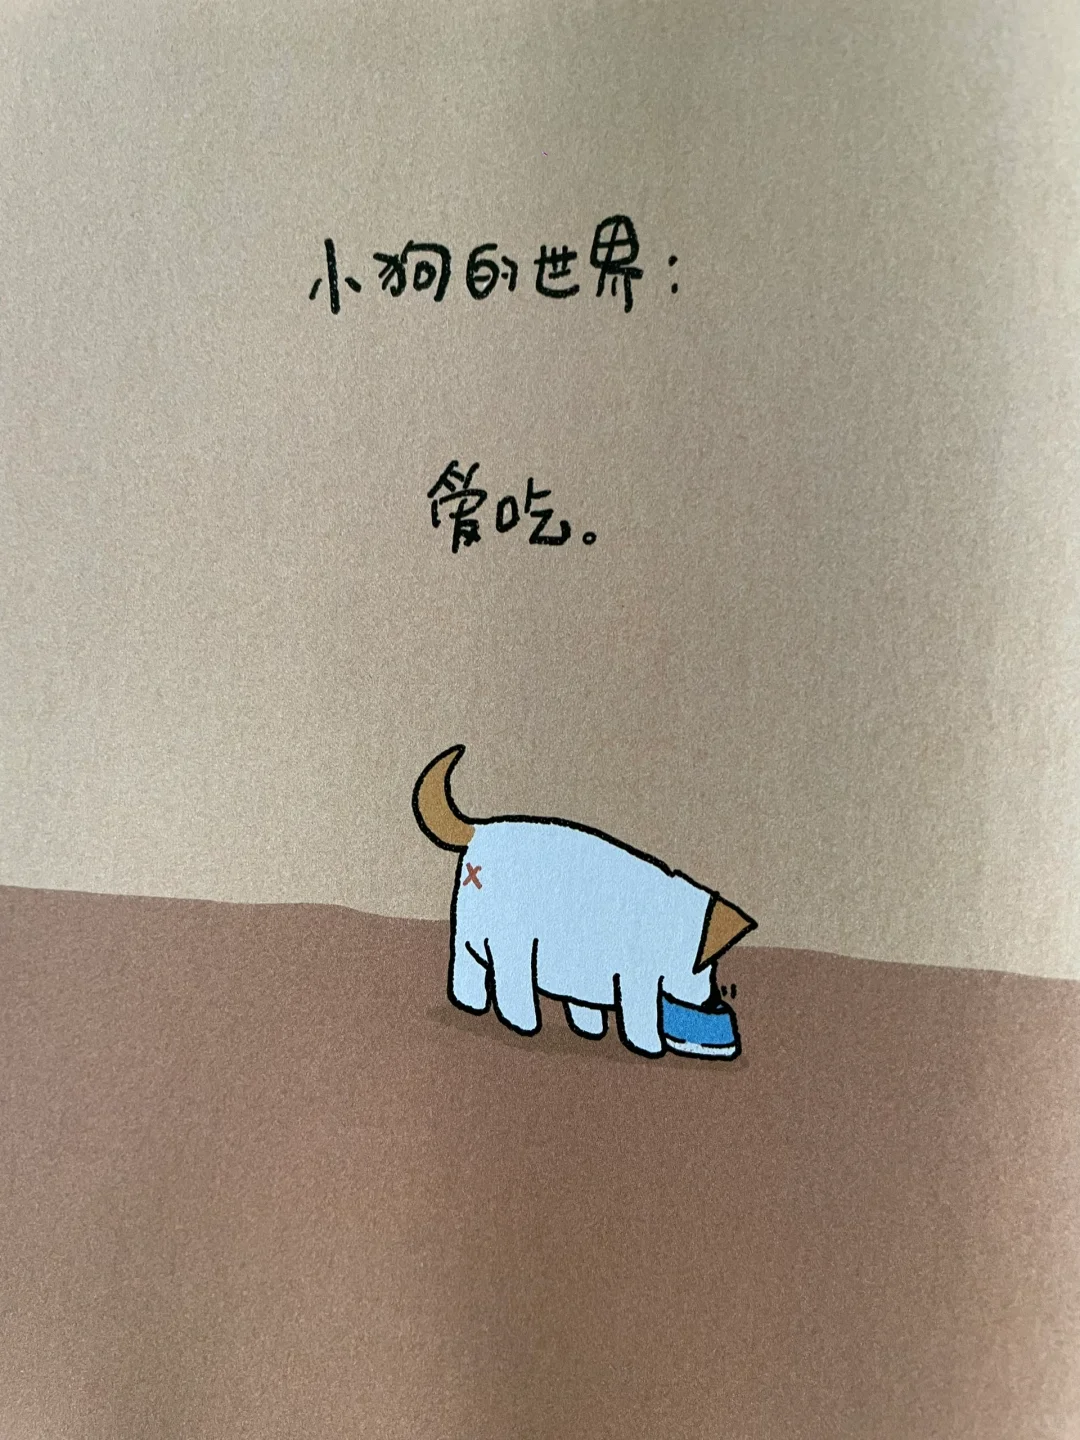 小狗的世界：
爱吃。